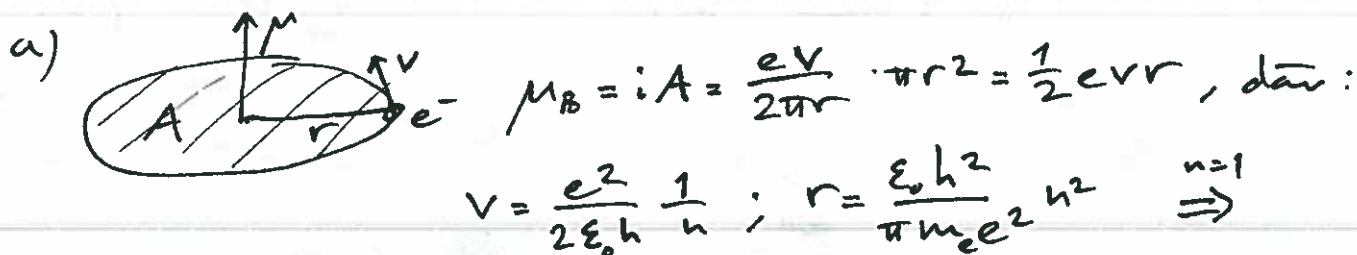 a) μ v A r e⁻ μ_B = iA = \frac{ev}{2πr} · πr² = \frac{1}{2} evr , där :
v = \frac{e²}{2ε₀h} \frac{1}{n} ; r = \frac{ε₀h²}{πm_e e²} n² \overset{n=1}{⇒}